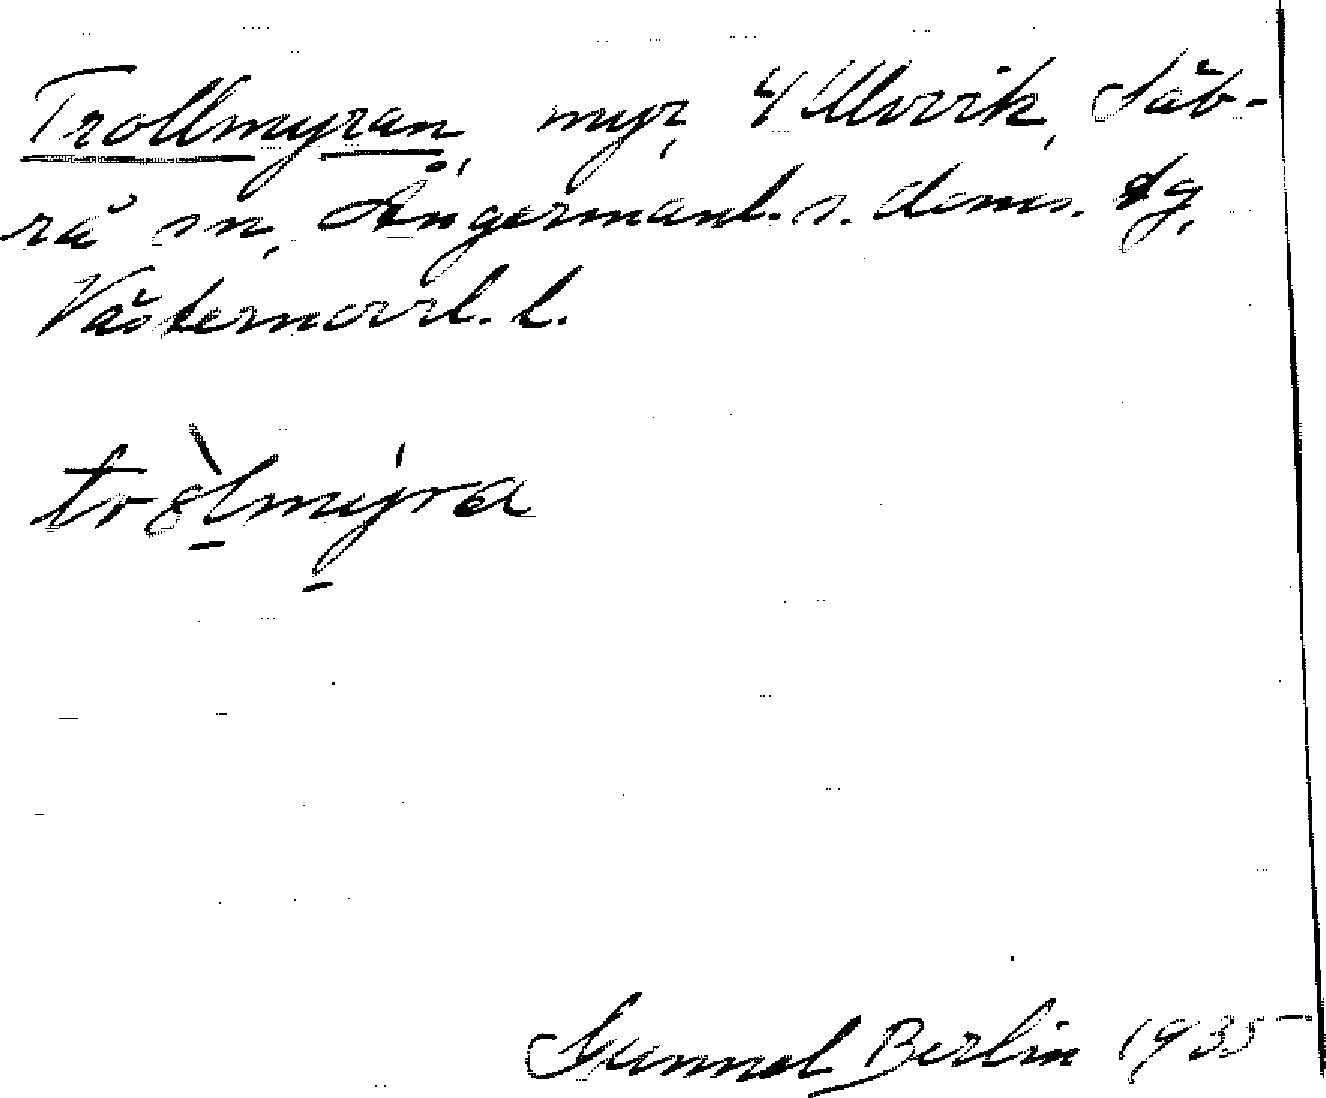 Trollmyran, myr, Y Ullvvik, Säb-
rå sn, Ångermanl. s. doms. dg,
Västernorrl. l.
tròlmýra
Gunnel Berlin 1935